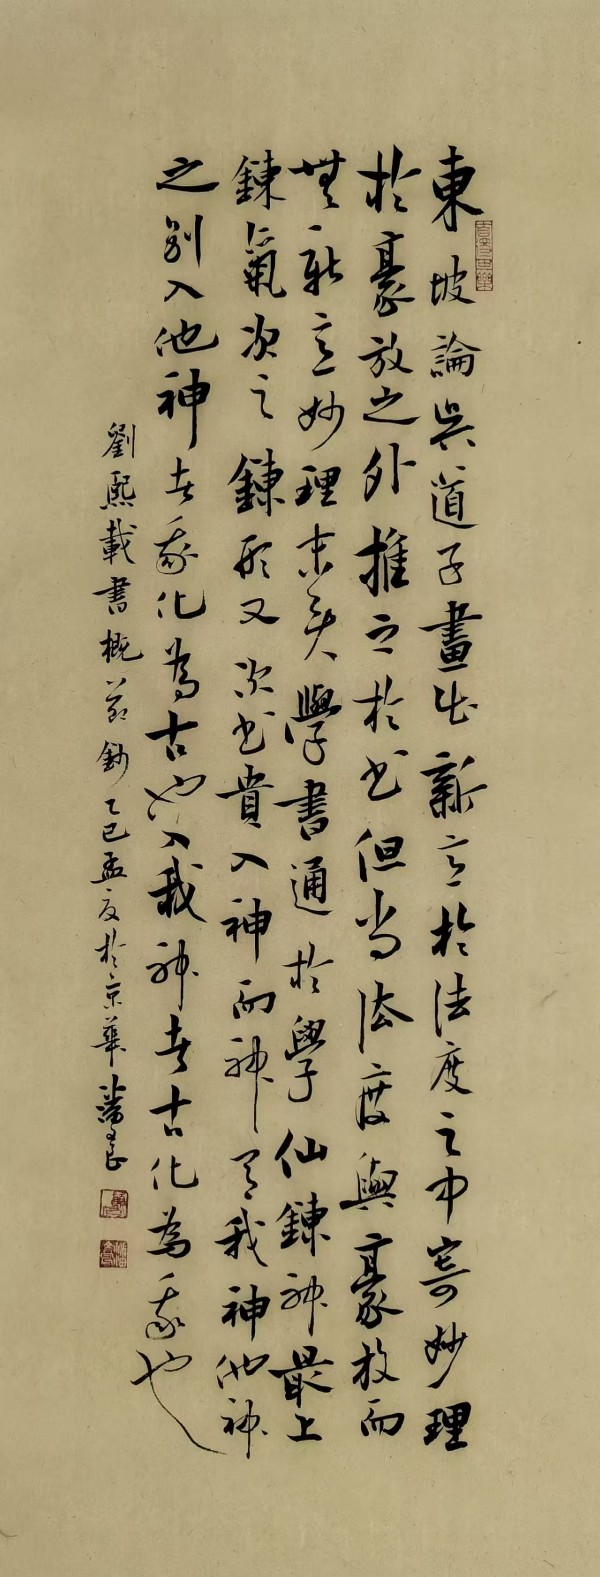 東坡論吳道子畫出新意於法度之中寄妙理
於豪放之外推之於書但尚法度與豪放而
無新意妙理末矣學書通於學仙鍊神最上
鍊氣次之鍊形又次書貴入神而神有我神他神
之別入他神者我化為古也入我神者古化為我也
劉熙載書概節鈔乙巳孟夏於京華潘良